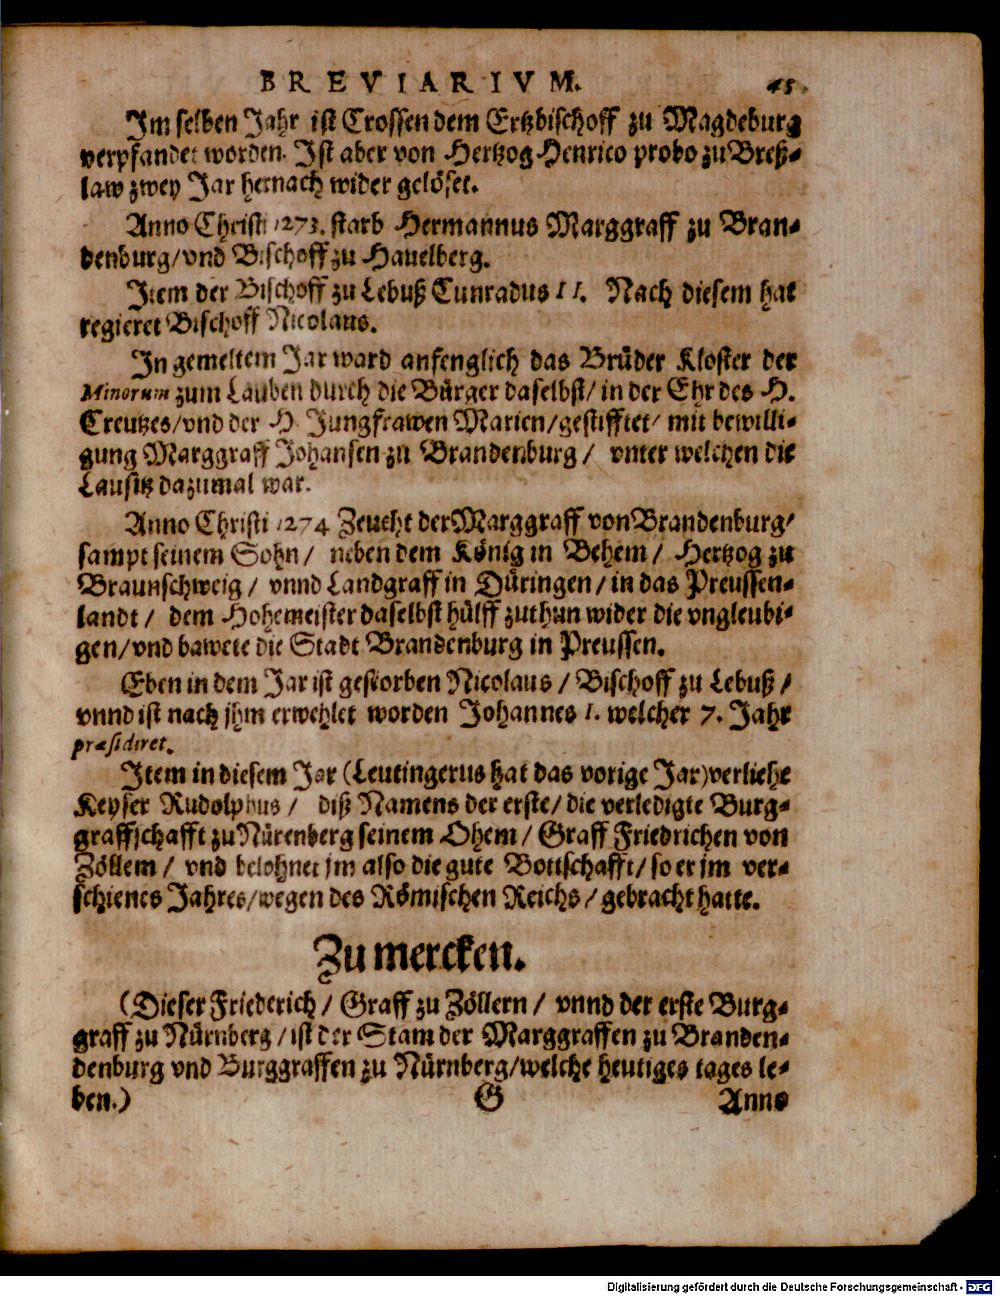 BREVIARIVM. 45.
Im selben Jahr ist Crossen dem Ertzbischoff zu Magdeburg
verpfandet worden. Ist aber von Hertzog Henrico probo zu Breß-
law zwey Jar hernach wider gelöset.
Anno Christi 1273. starb Hermannus Marggraff zu Bran-
denburg/vnd Bischoff zu Hauelberg.
Item der Bischoff zu Lebuß Cunradus II. Nach diesem hat
regieret Bischoff Nicolaus.
In gemeltem Jar ward anfenglich das Brüder Kloster der
Minorum zum Lauben durch die Bürger daselbst/ in der Ehr des H.
Creutzes/vnd der H. Jungfrawen Marien/gestifftet/ mit bewilli-
gung Marggraff Johansen zu Brandenburg/ vnter welchen die
Lausitz dazumal war.
Anno Christi 1274 Zeucht der Marggraff von Brandenburg/
sampt seinem Sohn/ neben dem König in Behem/ Hertzog zu
Braunschweig/ vnnd Landgraff in Düringen/in das Preussen-
landt/ dem Hohemeister daselbst hülff zuthun wider die vngleubi-
gen/vnd bawete die Stadt Brandenburg in Preussen.
Eben in dem Jar ist gestorben Nicolaus/ Bischoff zu Lebuß/
vnnd ist nach jhm erwehlet worden Johannes I. welcher 7. Jahr
præsidiret.
Item in diesem Jar (Leutingerus hat das vorige Jar) verliehe
Keyser Rudolphus/ diß Namens der erste/ die verledigte Burg-
graffschafft zu Nürenberg seinem Ohem/ Graff Friedrichen von
Zöllern/ vnd belohnet jm also die gute Bottschafft/ so er jm ver-
schienes Jahres/wegen des Römischen Reichs/ gebracht hatte.
Zu mercken.
(Dieser Friederich/ Graff zu Zöllern/ vnnd der erste Burg-
graff zu Nürnberg/ist der Stam der Marggraffen zu Branden-
denburg vnd Burggraffen zu Nürnberg/welche heutiges tages le-
ben.) G Anno
Digitalisierung gefördert durch die Deutsche Forschungsgemeinschaft - DFG